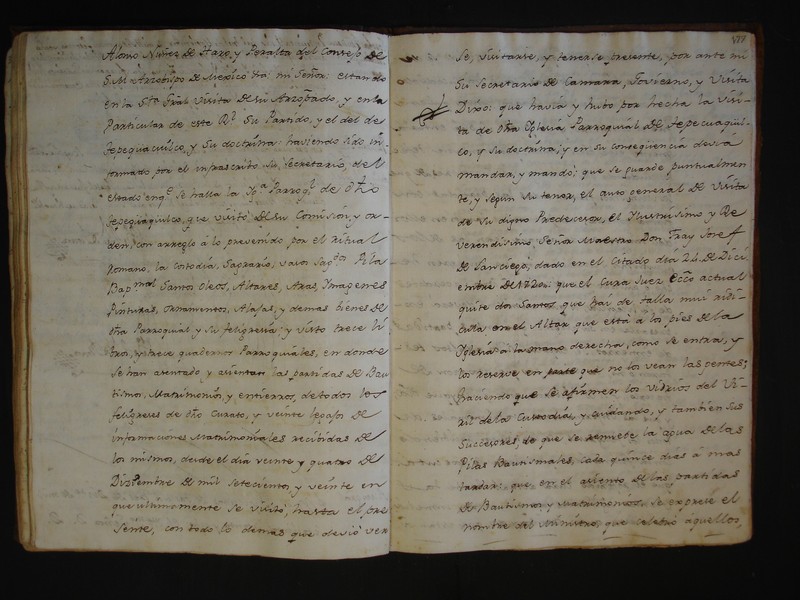 Alonso Nuñez de Haro, y Peralta del Consejo de
S.M. Arzobispo de Mexico &a. mi Señor: estando
en la Sta. Gral Visita de su Arzpado, y en la
Particular de este Rl. Su Partido, y el del de
Tepequacuilco, y su doctrina: haviendo sido in-
formado por el infrascrito su Secretario, del
estado en qe. se halla la Iga. Parroql. de dho
Tepequaquilco, que visitó de su Comision, y or-
den, con arreglo á lo prevenido por el ritual
Romano, la Custodia, Sagrario, vasos Sagdos. Pila
Bapmal. Santos Oleos, Altares, Aras, Ymagenes
Pinturas, Ornamentos, Alajas, y demas bienes de
dha Parroquial y su feligresia: y visto trece li
bros, y trece quadernos Parroquiales, en donde
se han asentado y asientan las partidas de Bau
tismos, Matrimonios, y entierros, de todos los
feligreses de dho Curato, y veinte legajos de
informaciones Matrimoniales recibidas de
los mismos, desde el dia veinte y quatro de
Diziembre de mil setecientos, y veinte en
que ultimamente se visitó, hasta el pre
sente, con todo lo demas que devió ver
177
se, visitarse, y tenerse presente, por ante mi
Su Secretario de Camara, Govierno, y Visita
Dixo: que havia y huvo por hecha la visi-
ta de dha Yglesia Parroquial de Tepecuaquil-
co, y su doctrina, y en su conseqüencia devia
mandar, y mandó: que se guarde puntualmen
te, y segun su tenor, el auto general de Visita
de su digno Predecesor, el Ilustrisimo y Re
verendisimo Señor Maestro Don Fray Josef
de Lanciego, dado en el citado dia 24 de Dici
embre de 1720: que el Cura Juez Ecco actual
quite dos Santos que hai de talla mui ridi-
cula en el Altar que está á los pies de la
Yglesia á la mano derecha, como se entra, y
los reserve en parte que no los vean las gentes;
haciendo que se afirmen los Vidrios del Vi-
ril de la Custodia, y cuidando, y tambien sus
Succesores, de que se renueve la agua de las
Pilas Bautismales, cada quince dias a mas
tardar: que en el asiento de las partidas
de Bautismos y Matrimonios, se exprese el
nombre del Ministro, que celebró aquellos,